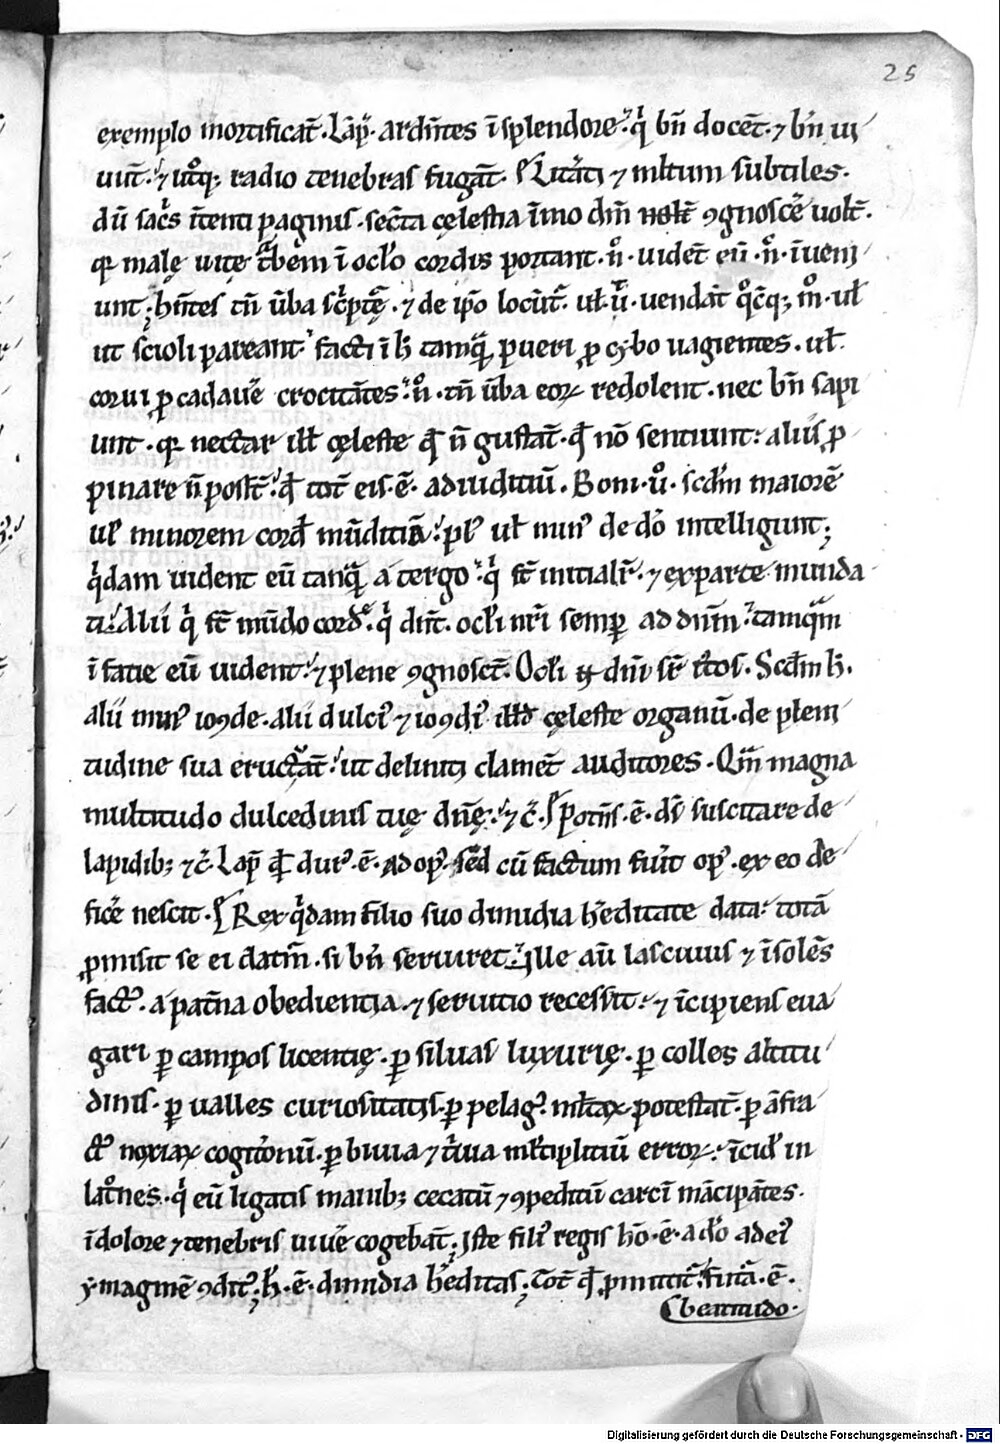 25
exemplo mortificat̄. Lāp̄. ardn̄tes ī splendore. qͥ bn̄ docēt. ⁊ bn̄ ui
uūt. ⁊ utͦq; radio tenebras fugāt. Litāti ⁊ ml̄tum subtiles.
dū sacͥs ītenti paginis. secͣta cęlestia īmo dm̄ ꝯgnoscē uolt̄.
qꝛ malę uitę tͣbem ī oclo cordis portant. nͦ. uidēt eū. nͦ. īueni
unt; hn̄tes tn̄ ūba scͥptę. ⁊ de ip̄o locūt. ul̄ uendāt ul̄
ut scioli pareant. facti ī tamqͣ pueri ꝓ cybo uagientes. ul̄.
corui ꝓ cadauē crocitātes. nͦ. tn̄ ūba eoꝝ redolent. nec bn̄ sapi
unt. qꝛ nectar ill̄ cęleste qd̄ n̄ gustāt. qd̄ nō sentiunt: aliis ꝓ
pinare n̄ post̄. qd̄ tot̄ eis. ē. ad iuditiū. Boni. uͦ. scd̄m maiorē
ul̄ minorem cord̄ mūditiā. pl᷒ ul̄ min᷒ de dō intelligunt;
qͥdam uident eū tanqͣ a tergo. qͥ st̄ initial᷒. ⁊ ex parte munda
ti. Alii qͥ st̄ mūdo cord̄. qͥ dn̄t. ocl̄i nr̄i semꝑ ad dnm̄. tamqͣm
ī fatie eū uident. ⁊ plene ꝯgnosct̄. Ocl̄i dn̄i sr̄ Scd̄m h̄.
alii min᷒ ioꝯde. alii dulci᷒ ⁊ ioꝯdi᷒ illd̄ cęleste organū. de pleni
tudine sua eructāt. ut deliniti clamēt auditores. Qm̄ magna
multitudo dulcedinis tuę dn̄ę. ⁊ c̄. Potn̄s. ē. ds̄ suscitare de
lapidib; ⁊ c̄. Lap̄ qd̄ dur᷒. ē. ad op᷒. sed cū factum fūit op᷒. ex eo de
ficē nescit. Rex qͥdam filio suo dimidia hēditate data. totā
ꝓmisit se ei datm̄. si bn̄ seruiret. Ille aū lasciuus ⁊ īsolēs
fact᷒. a pat̄na obedientia. ⁊ seruitio recessit. ⁊ īcipiens eua
gari ꝑ campos licentię. ꝑ siluas luxurię. ꝑ colles altitu
dinis. ꝑ ualles curiositatis. ꝑ pelag᷒ potestat̄. ꝑ āfra
noxiaꝝ cogitōnū. ꝑ biuia ⁊ tͥuia ml̄tiplitiū erroꝝ. īcid̄ in
latͦnes. qͥ eū ligatis manib; cecatū ⁊ ꝯpeditū carcī mācipātes.
ī dolore ⁊ tenebris uiuē cogebāt; Iste fili᷒ regis hō. ē. ad
ymaginē ꝯdit᷒; h̄. ē. dimidia hēditas; Tot̄ qd̄ ꝓmittit̄. fut̄a. ē.
beatitudo.
Digitalisierung gefördert durch die Deutsche Forschungsgemeinschaft - DFG